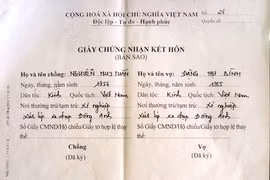 CỘNG HOÀ XÃ HỘI CHỦ NGHĨA VIỆT NAM
Độc lập - Tự do - Hạnh phúc
Số
GIẤY CHỨNG NHẬN KẾT HÔN
(BẢN SAO)
Họ và tên chồng: NGUYỄN HUY
Ngày, tháng, năm sinh:
Dân tộc: Kinh Quốc tịch: Việt Nam
Nơi thường trú/tạm trú: Xí nghiệp
Đông Anh
Số Giấy CMND/Hộ chiếu/Giấy tờ hợp lệ thay
thế:
Chồng
(Đã ký)
Họ và tên vợ: ĐẶNG THỊ BÌNH
Ngày, tháng, năm sinh:
Dân tộc: Kinh Quốc tịch: Việt Nam
Nơi thường trú/tạm trú: Xí nghiệp
Đông Anh
Số Giấy CMND/Hộ chiếu/Giấy tờ hợp lệ thay
thế:
Vợ
(Đã ký)